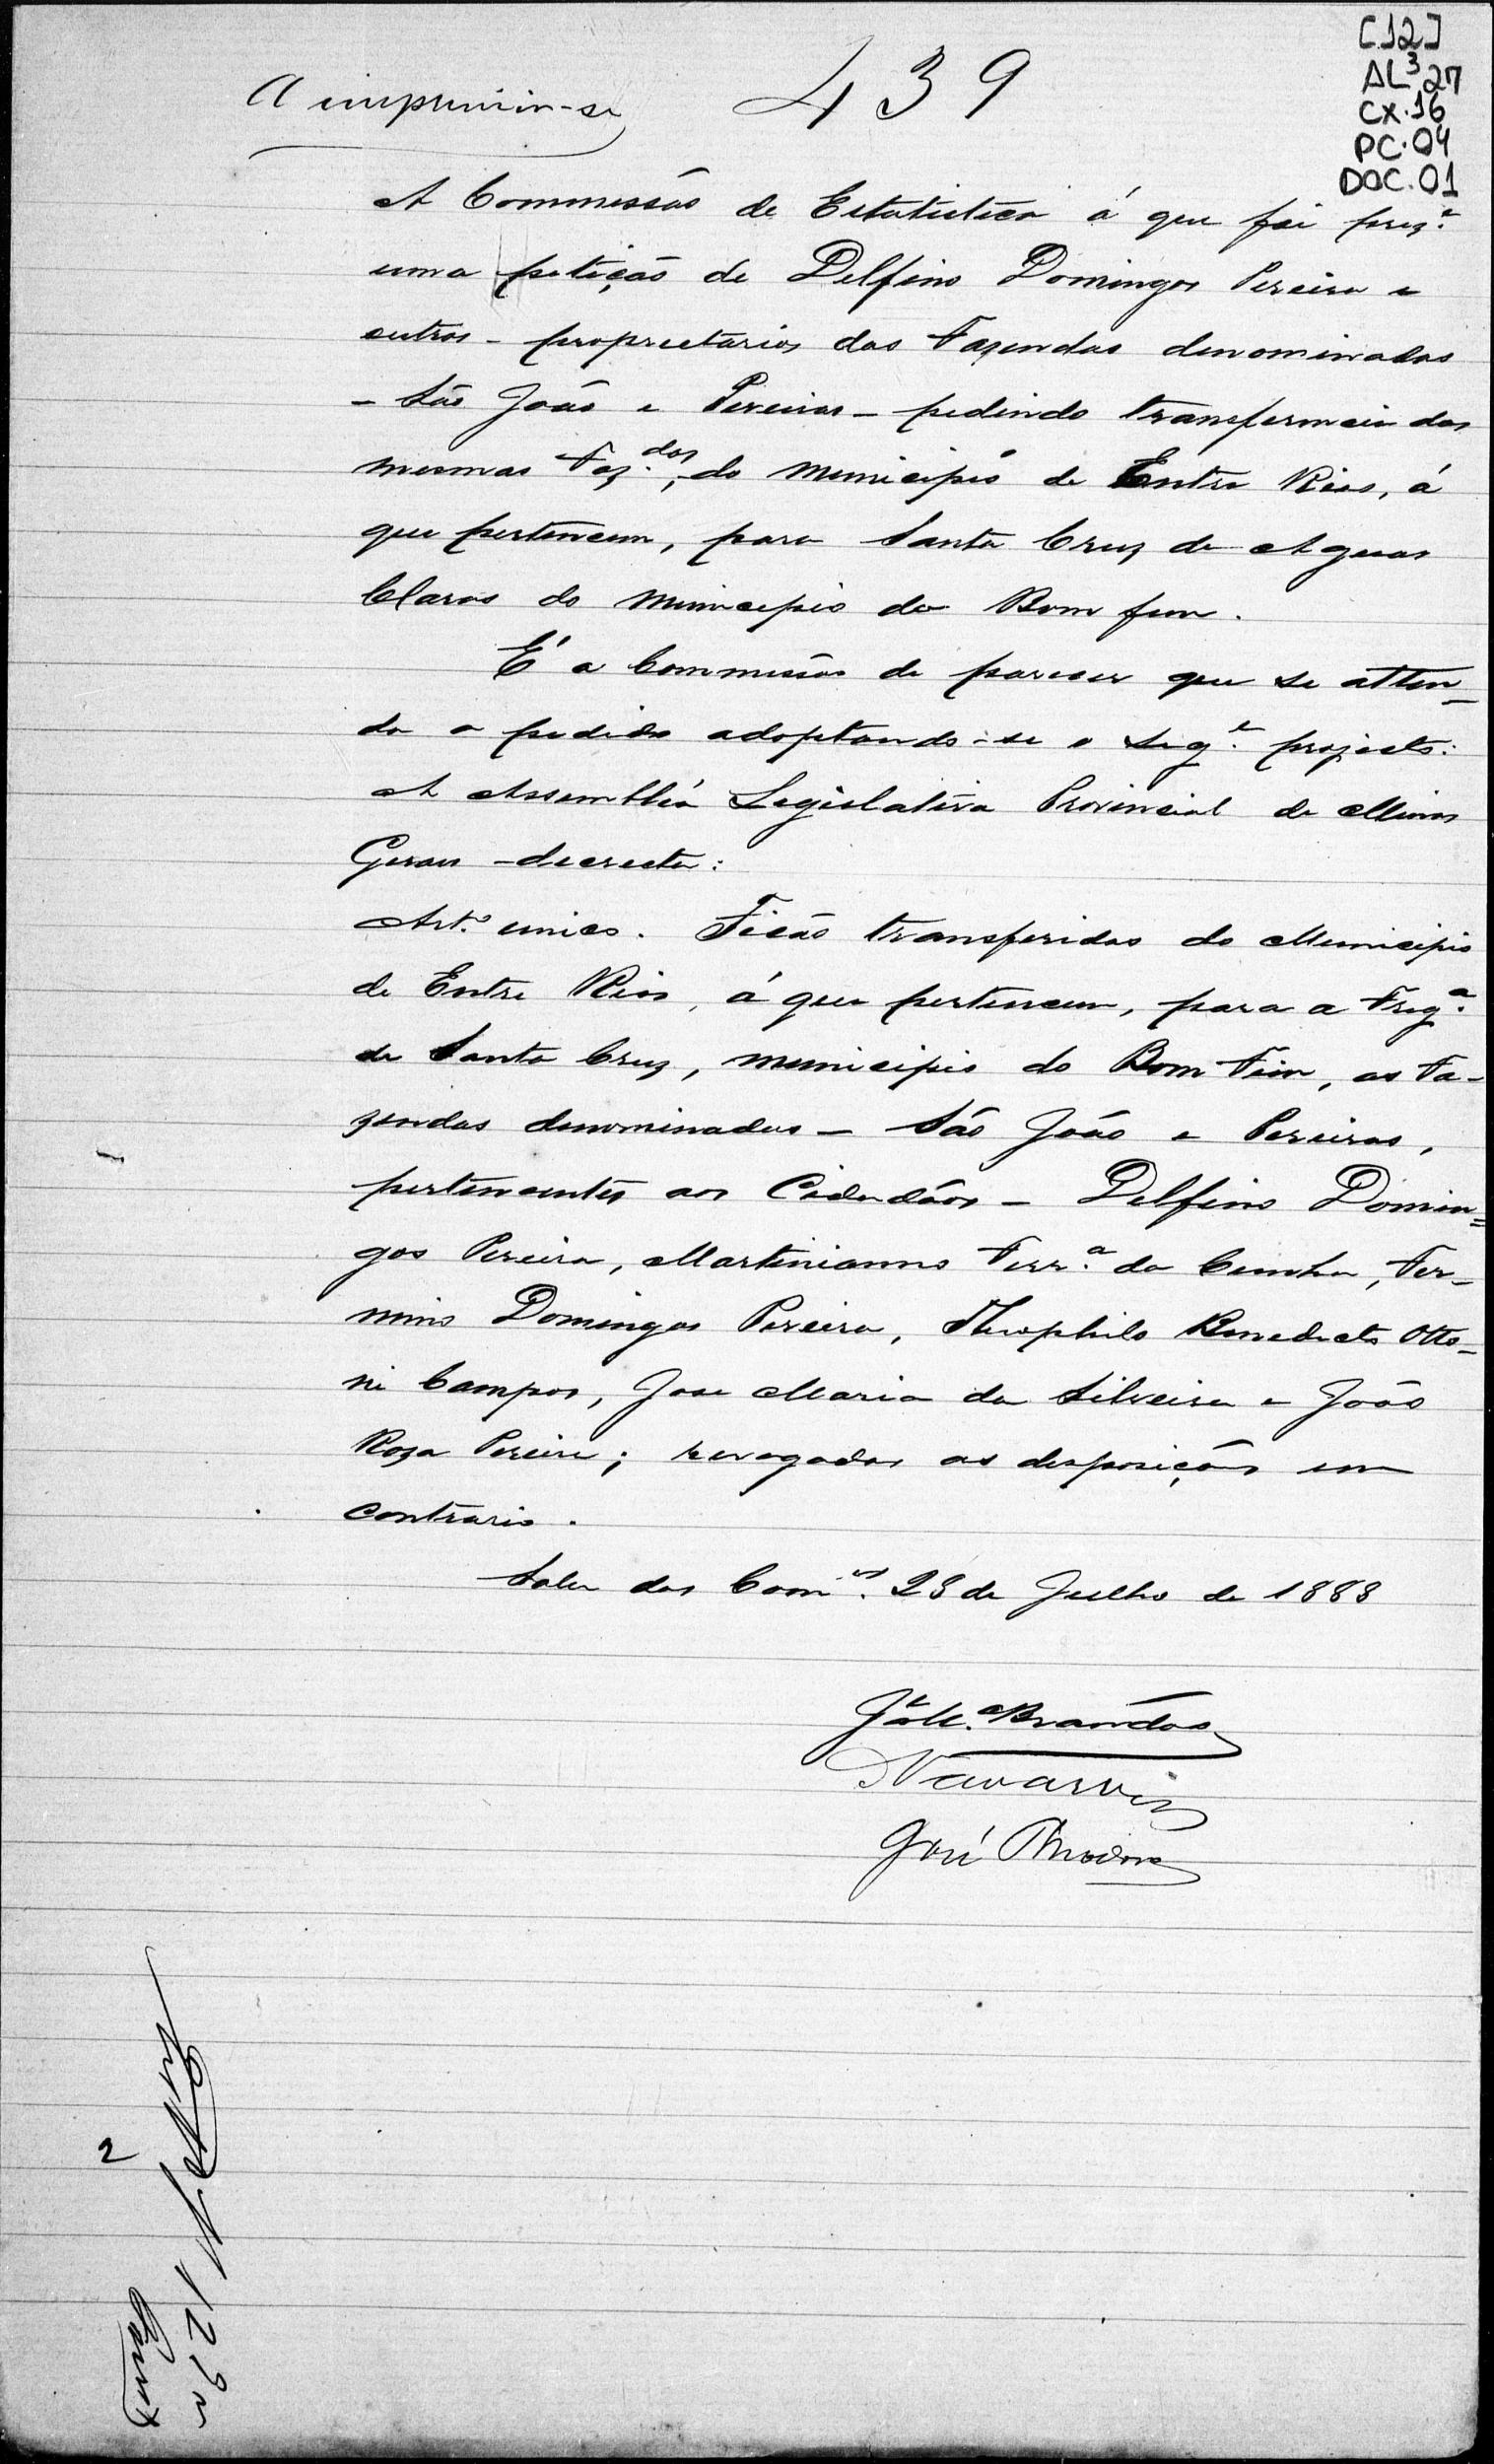 [12]
AL³27
CX.16
PC.04
DOC.01
A imprimir-se
439
A Commissão de Estatistica á que foi prez.e
uma petição de Delfino Domingos Pereira e
outros - proprietarios das Fazendas denominadas
- São João e Pereiras - pedindo transferencia das
mesmas Faz.das, do municipio de Entre Rios, á
que pertencem, para Santa Cruz de Aguas
Claras do municipio do Bom fim.
É a Commissão de parecer que se atten-
da o pedido adoptando-se o seg.e projecto:
A Assembléa Legislativa Provincial de Minas
Geraes - decreta:
Art.o unico. Ficão transferidas do Municipio
de Entre Rios, á que pertencem, para a Freg.a
de Santa Cruz, municipio do Bom Fim, as Fa-
zendas denominadas - São João e Pereiras,
pertencentes aos Cidadãos - Delfino Domin=
gos Pereira, Martinianno Ferr.a da Cunha, Fer-
mino Domingos Pereira, Theophilo Benedicto Otto-
ni Campos, Jose Maria da Silveira e João
Roza Pereira; revogadas as disposições em
contrario.
Sala das Com.es 28 de Julho de 1888
Brandão
Navarro
José Theodoro
2